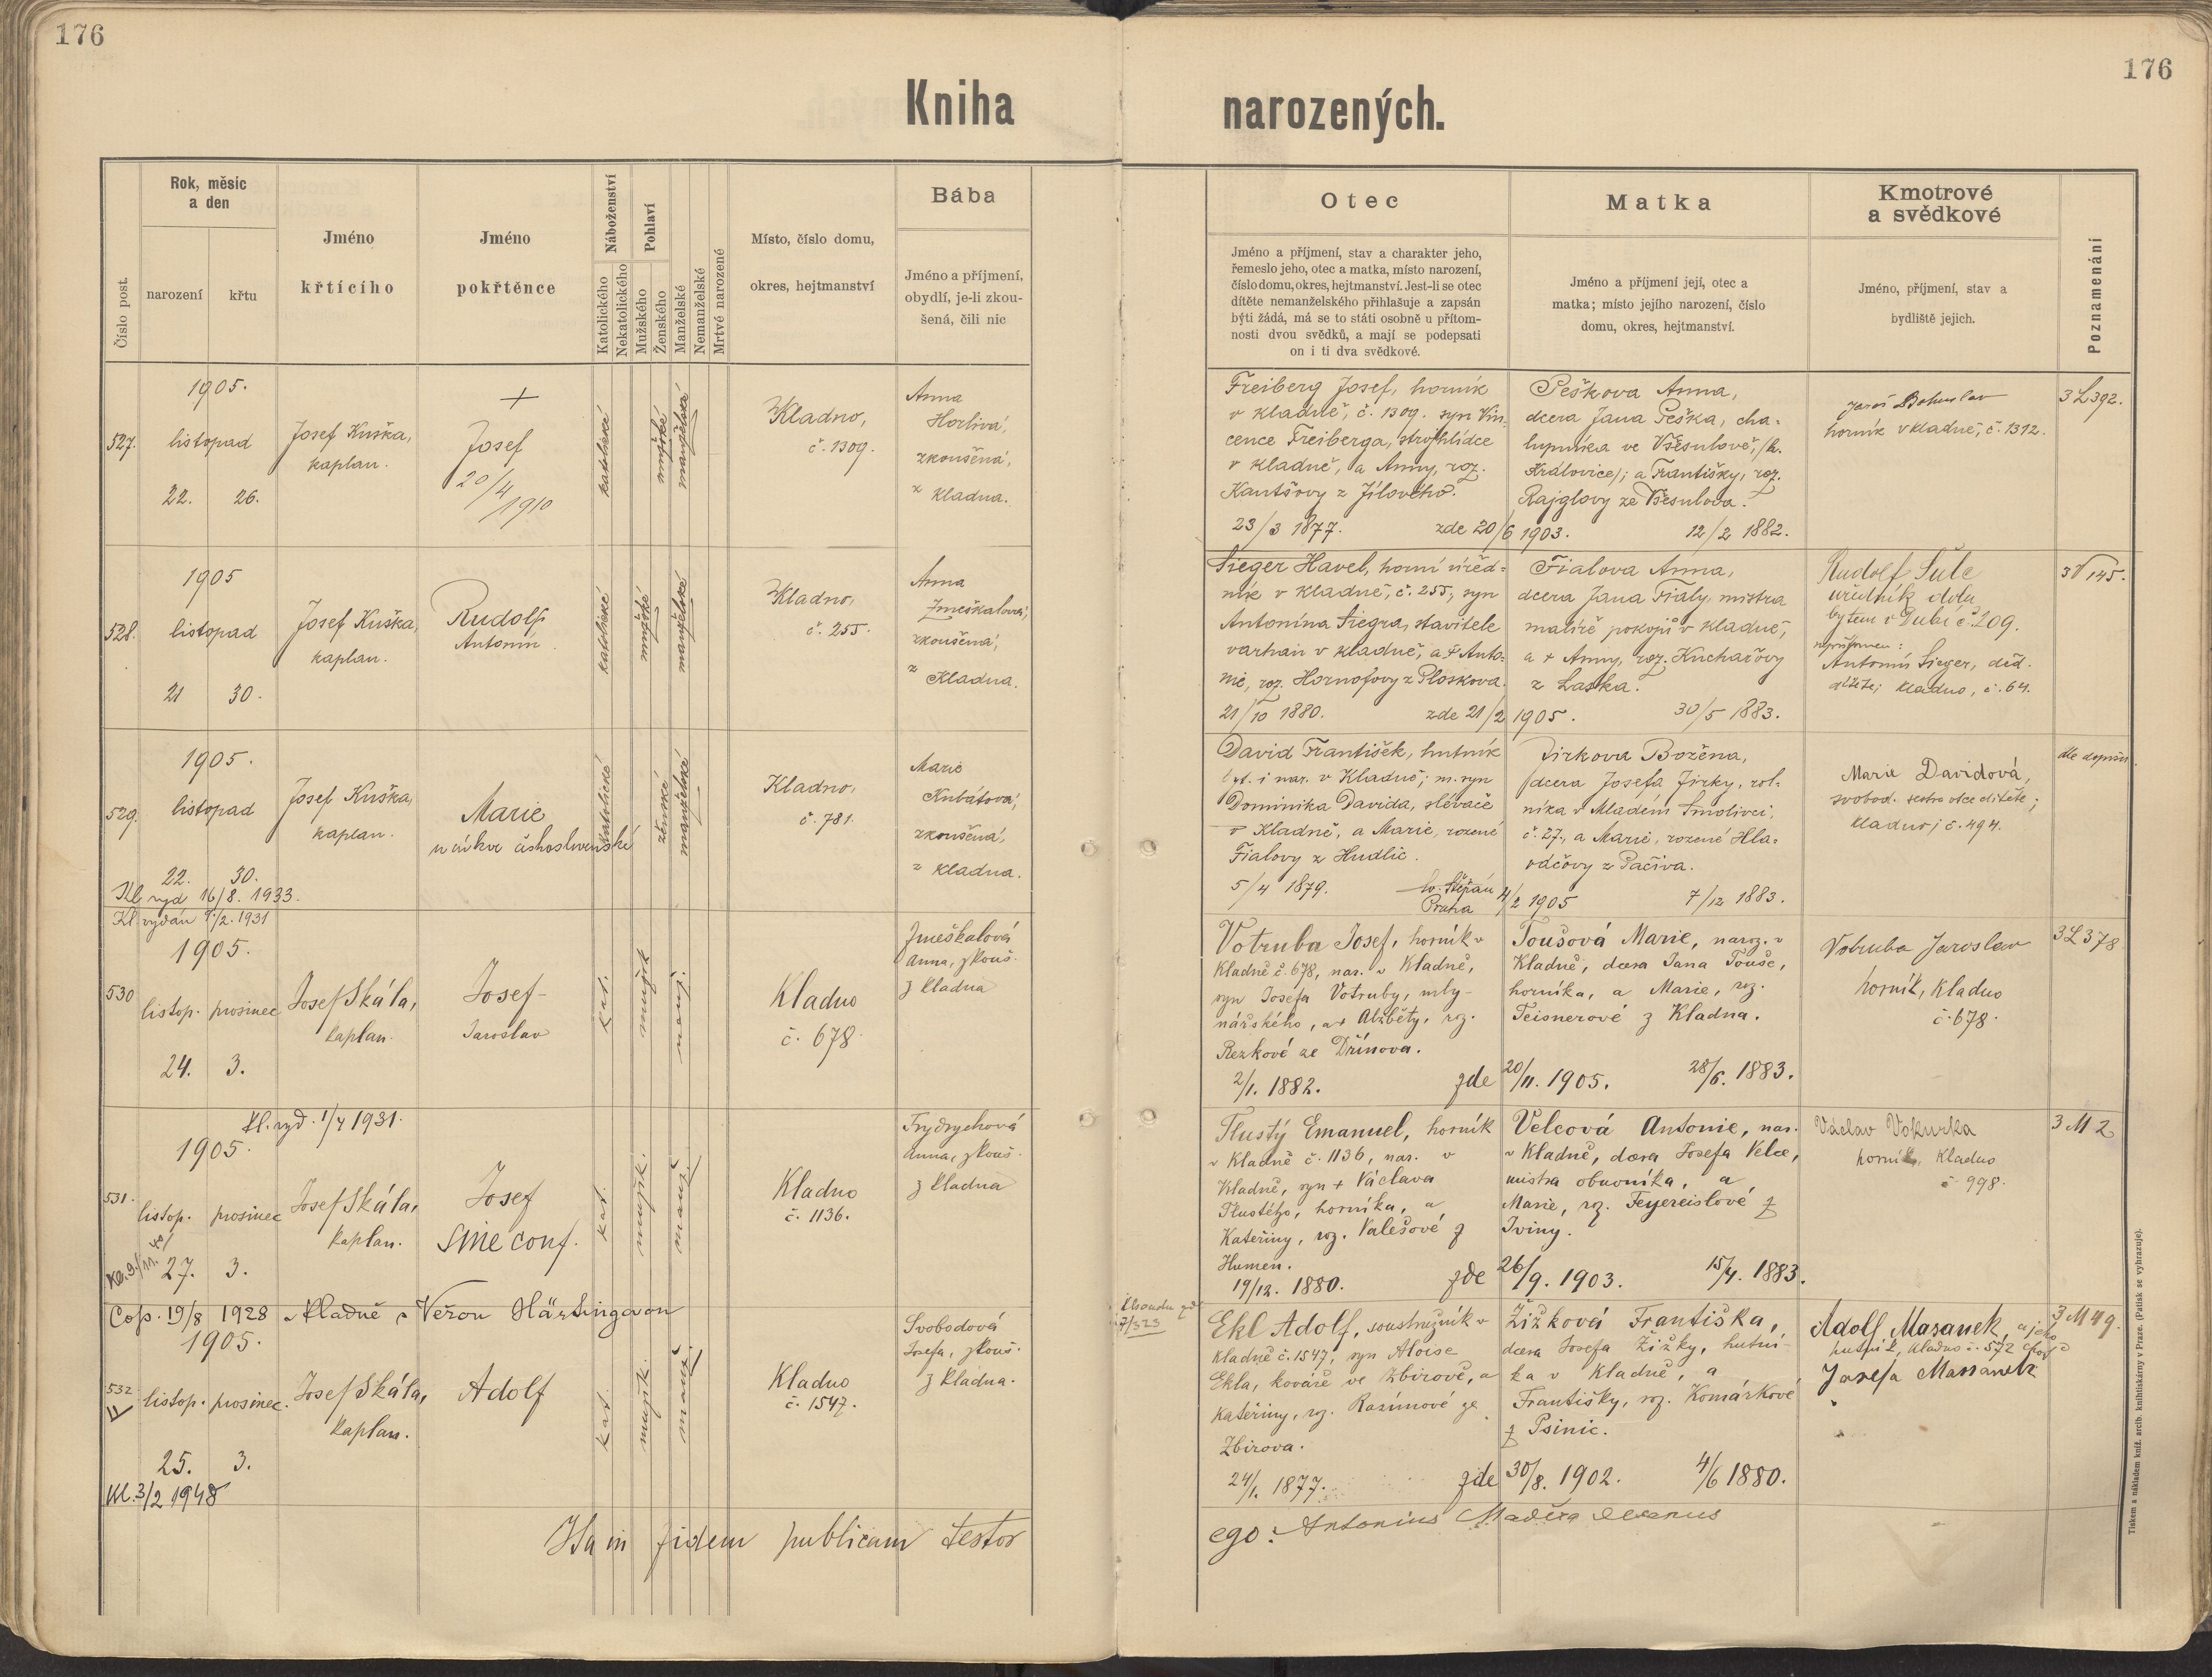 176
176
Kniha narozených.
Číslo post.
Rok, měsíc
a den
narození
křtu
Jméno
křtícího
Jméno
pokřtěnce
Náboženství
Katolického
Nekatolického
Pohlaví
Mužského
Ženského
Manželské
Nemanželské
Mrtvé narozené
Místo, číslo domu,
okres, hejtmanství
Bába
Jméno a příjmení,
obydlí, je-li zkou-
šená, čili nic
Otec
Jméno a příjmení, stav a charakter jeho,
řemeslo jeho, otec a matka, místo narození,
číslo domu, okres, hejtmanství. Jest-li se otec
dítěte nemanželského přihlašuje a zapsán
býti žádá, má se to státi osobně u přítom-
nosti dvou svědků, a mají se podepsati
on i ti dva svědkové.
Matka
Jméno a příjmení její, otec a
matka; místo jejího narození, číslo
domu, okres, hejtmanství.
Kmotrové
a svědkové
Jméno, příjmení, stav a
bydliště jejich.
Poznamenání
527.
1905.
listopad
22. 26.
Josef Kuška,
kaplan.
+
Josef
20/4
1910
katolické
mužské
manželské
Kladno,
č. 1309.
Anna
Horlivá,
zkoušená,
z Kladna.
Freiberg Josef, horník
v Kladně, č. 1309. syn Vin-
cence Freiberga, strojhlídce
v Kladně, a Anny, roz.
Kautšovy z Jílového.
23/3 1877. zde 20/6 1903.
Peškova Anna,
dcera Jana Peška, cha-
lupníka ve Všesulově, /h.
Kralovice/; a Františky, roz.
Rajglovy ze Všesulova.
12/2 1882.
Jaroš Bohuslav
horník v Kladně, č. 1312.
3 L 392.
528.
1905
listopad
21 30.
Josef Kuška,
kaplan.
Rudolf
Antonín
katolické
mužské
manželské
Kladno,
č. 255.
Anna
Zmeškalová,
zkoušená,
z Kladna.
Sieger Havel, horní úřed-
ník v Kladně, č. 255, syn
Antonína Siegra, stavitele
varhan v Kladně, a + Anto-
nie, roz. Hornofovy z Ploskova.
21/10 1880. zde 21/2 1905.
Fialova Anna,
dcera Jana Fialy, mistra
malíře pokojů v Kladně,
a + Anny, roz. Kuchařovy
z Laska.
30/5 1883.
Rudolf Šulc
úředník dolu
bytem v Dubí č. 209.
Antonín Sieger, děd.
dítěte; Kladno, č. 64.
3 V 145.
529.
1905.
listopad
22. 30.
Kl. vyd 16/8. 1933.
Josef Kuška,
kaplan.
Marie
katolické
ženské
manželské
Kladno,
č. 781.
Marie
Kubátová,
zkoušená,
z Kladna.
David František, hutník
byt. i nar. v Kladně; m. syn
Dominika Davida, slévače
v Kladně, a Marie, rozené
Fialovy z Hudlic.
5/4 1879. Sv. Štěpán
Praha 4/2 1905
Jirkova Božena,
dcera Josefa Jirky, rol-
níka v Mladém Smolivci,
č. 27., a Marie, rozené Hla-
váčovy z Pačiva.
7/12 1883.
Marie Davidová,
svobod. sestra otce dítěte;
Kladno; č. 494.
530
1905.
listop. prosinec
24. 3.
Josef Skála,
kaplan.
Josef
Jaroslav
kat.
mužsk.
manž.
Kladno
č. 678.
Zmeškalová
Anna, zkouš.
z Kladna
Votruba Josef, horník v
Kladně č. 678, nar. v Kladně,
syn Josefa Votruby, mly-
nářského, a + Alžběty, roz.
Rezkové ze Dřínova.
2/1. 1882. zde 20/11. 1905.
Toušová Marie, naroz. v
Kladně, dcera Jana Touše,
horníka, a Marie, roz.
Teisnerové z Kladna.
28/6. 1883.
Votruba Jaroslav
horník, Kladno
č. 678.
3 L 378
531.
Kl. vyd. 1/4 1931.
1905.
listop. prosinec
27. 3.
Josef Skála,
kaplan.
Josef
sine conf.
kat.
mužsk.
manž.
Kladno
č. 1136.
Frydrychová
Anna, zkouš.
z Kladna
Tlustý Emanuel, horník
v Kladně č. 1136, nar. v
Kladně, syn + Václava
Tlustého, horníka, a
Kateřiny, roz. Valešové z
Humen.
19/12. 1880. zde 26/9. 1903.
Velcová Antonie, nar.
v Kladně, dcera Josefa Velce,
mistra obuvníka, a
Marie, roz. Feyereislové z
Jviny.
15/4. 1883.
Václav Vokurka
horník, Kladno
č. 998.
3 M 2
532
Cop. 19/8 1928 v Kladně s Věrou Härtingovou
1905.
listop. prosinec.
25. 3.
Kl. 3/2 1948
Josef Skála,
kaplan.
Adolf
kat.
mužsk.
manž.
Kladno
č. 1547.
Svobodová
Josefa, zkouš.
z Kladna.
Ekl Adolf, soustružník v
Kladně č. 1547, syn Aloise
Ekla, kováře ve Zbirově, a
Kateřiny, roz. Rasímové ze
Zbirova.
24/1. 1877. zde 30/8. 1902.
Žižková Františka,
dcera Josefa Žižky, hutní-
ka v Kladně, a
Františky, roz. Komárkové
z Psinic.
4/6 1880.
Adolf Masanek, a jeho
hutník, Kladno č. 572 choť
Josefa Massanek
3 M 49.
Ita in fidem publicam testor
ego: Antonius Maděra decanus
Tiskem a nákladem kníž. arcib. knihtiskárny v Praze. (Patisk se vyhrazuje).